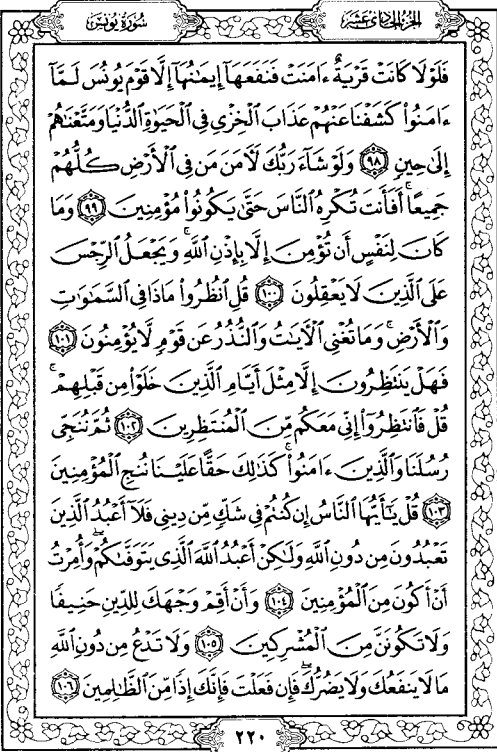 الجزء الحادي عشر
سورة يونس
فَلَوْلَا كَانَتْ قَرْيَةٌ ءَامَنَتْ فَنَفَعَهَآ إِيمَٰنُهَآ إِلَّا قَوْمَ يُونُسَ لَمَّآ
ءَامَنُوا۟ كَشَفْنَا عَنْهُمْ عَذَابَ الْخِزْىِ فِى الْحَيَوٰةِ الدُّنْيَا وَمَتَّعْنَٰهُمْ
إِلَىٰ حِينٍ ٩٨ وَلَوْ شَآءَ رَبُّكَ لَـَٔامَنَ مَن فِى الْأَرْضِ كُلُّهُمْ
جَمِيعًا ۚ أَفَأَنتَ تُكْرِهُ النَّاسَ حَتَّىٰ يَكُونُوا۟ مُؤْمِنِينَ ٩٩ وَمَا
كَانَ لِنَفْسٍ أَن تُؤْمِنَ إِلَّا بِإِذْنِ اللَّهِ ۚ وَيَجْعَلُ الرِّجْسَ
عَلَى الَّذِينَ لَا يَعْقِلُونَ ١٠٠ قُلِ انظُرُوا۟ مَاذَا فِى السَّمَٰوَٰتِ
وَالْأَرْضِ ۚ وَمَا تُغْنِى الْـَٔايَٰتُ وَالنُّذُرُ عَن قَوْمٍ لَّا يُؤْمِنُونَ ١٠١
فَهَلْ يَنتَظِرُونَ إِلَّا مِثْلَ أَيَّامِ الَّذِينَ خَلَوْا۟ مِن قَبْلِهِمْ ۚ
قُلْ فَانتَظِرُوٓا۟ إِنِّى مَعَكُم مِّنَ الْمُنتَظِرِينَ ١٠٢ ثُمَّ نُنَجِّى
رُسُلَنَا وَالَّذِينَ ءَامَنُوا۟ ۚ كَذَٰلِكَ حَقًّا عَلَيْنَا نُنجِ الْمُؤْمِنِينَ
١٠٣ قُلْ يَٰٓأَيُّهَا النَّاسُ إِن كُنتُمْ فِى شَكٍّ مِّن دِينِى فَلَآ أَعْبُدُ الَّذِينَ
تَعْبُدُونَ مِن دُونِ اللَّهِ وَلَٰكِنْ أَعْبُدُ اللَّهَ الَّذِى يَتَوَفَّىٰكُمْ ۖ وَأُمِرْتُ
أَنْ أَكُونَ مِنَ الْمُؤْمِنِينَ ١٠٤ وَأَنْ أَقِمْ وَجْهَكَ لِلدِّينِ حَنِيفًا
وَلَا تَكُونَنَّ مِنَ الْمُشْرِكِينَ ١٠٥ وَلَا تَدْعُ مِن دُونِ اللَّهِ
مَا لَا يَنفَعُكَ وَلَا يَضُرُّكَ ۖ فَإِن فَعَلْتَ فَإِنَّكَ إِذًا مِّنَ الظَّٰلِمِينَ ١٠٦
٢٢٠